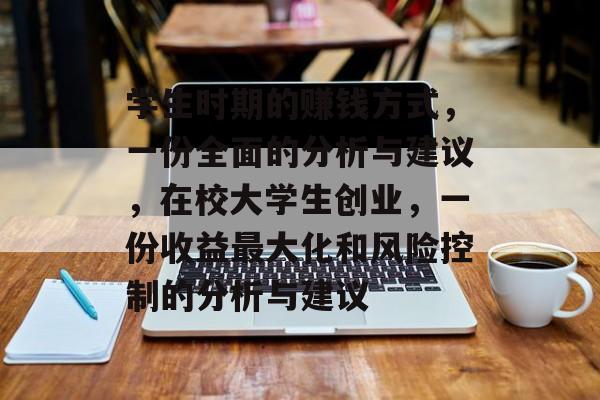 学生时期的赚钱方式，
一份全面的分析与建议
，在校大学生创业，一
份收益最大化和风险控
制的分析与建议